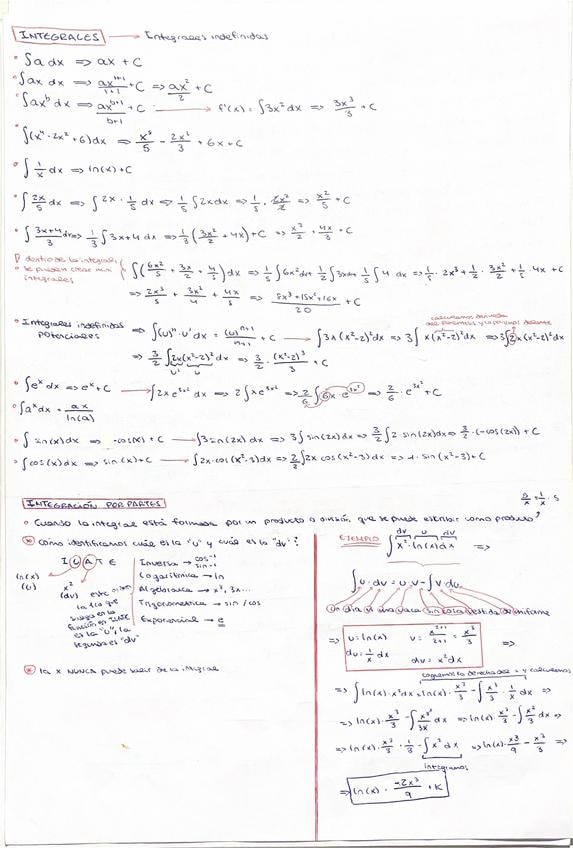 INTEGRALES → Integrales indefinidas
• ∫a dx ⇒ ax + C
• ∫ax dx ⇒ ax^(1+1)/(1+1) + C ⇒ ax²/2 + C
• ∫ax^b dx ⇒ ax^(b+1)/(b+1) + C → f'(x) = ∫3x² dx ⇒ 3x³/3 + C
• ∫(x⁴ - 2x² + 6)dx ⇒ x⁵/5 - 2x³/3 + 6x + C
• ∫ 1/x dx ⇒ ln(x) + C
• ∫ 2x/5 dx ⇒ ∫ 2x · 1/5 dx ⇒ 1/5 ∫ 2x dx ⇒ 1/5 · 2x²/2 ⇒ x²/5 + C
• ∫ (3x+4)/3 dx ⇒ 1/3 ∫ 3x+4 dx ⇒ 1/3 (3x²/2 + 4x) + C ⇒ x²/2 + 4x/3 + C
dentro de la integral
se pueden crear más
integrales
∫(6x²/5 + 3x/2 + 4/5) dx ⇒ 1/5 ∫6x² dx + 1/2 ∫3x dx + 1/5 ∫ 4 dx ⇒ 1/5 · 2x³ + 1/2 · 3x²/2 + 1/5 · 4x + C
⇒ 2x³/5 + 3x²/4 + 4x/5 ⇒ (8x³ + 15x² + 16x)/20 + C
• Integrales indefinidas
potenciales
⇒ ∫(u)ⁿ · u' dx = (u)^(n+1)/(n+1) + C → ∫3x(x²-2)² dx ⇒ 3∫ x(x²-2)² dx ⇒ 3∫2x(x²-2)² dx
⇒ 3/2 ∫2x(x²-2)² dx ⇒ 3/2 · (x²-2)³/3 + C
u' u
• ∫eˣ dx ⇒ eˣ + C → ∫2x e^(3x²) dx ⇒ 2∫x e^(3x²) ⇒ 2/6 ∫6x · e^(3x²) ⇒ 2/6 · e^(3x²) + C
• ∫aˣ dx = aˣ/ln(a)
• ∫ sin(x) dx ⇒ -cos(x) + C → ∫3 sin(2x) dx ⇒ 3∫ sin(2x) dx ⇒ 3/2 ∫ 2·sin(2x) dx ⇒ 3/2 · (-cos(2x)) + C
• ∫cos(x) dx ⇒ sin(x) + C → ∫2x·cos(x²-3) dx ⇒ 2/2 ∫2x cos(x²-3) dx ⇒ 1 · sin(x²-3) + C
INTEGRACIÓN POR PARTES
• Cuando la integral está formada por un producto o división, que se puede escribir como producto
* Cómo identificamos cuál es la "u" y cuál es la "dv"?
I L A T E
ln(x)
(u)
x²
(dv)
Inversa → cos⁻¹
sin⁻¹
Logarítmica → ln
Algebraica → x², 3x...
Trigonométrica → sin / cos
Exponencial → e
es la "u", la
segunda es "dv"
* la x NUNCA puede salir de la integral
EJEMPLO ∫ x² · ln(x) dx ⇒
dv u dv
∫u · dv = u · v - ∫v · du
un día vi una vaca sin cola vestida de uniforme
⇒ u = ln(x) v = x^(2+1)/(2+1) = x³/3 ⇒
du = 1/x dx dv = x² dx
⇒ ∫ ln(x) · x² dx = ln(x) · x³/3 - ∫ x³/3 · 1/x dx ⇒
⇒ ln(x) · x³/3 - ∫ x³/3x dx ⇒ ln(x) · x³/3 - ∫ x²/3 dx ⇒
⇒ ln(x) · x³/3 · 1/3 - ∫ x² dx ⇒ ln(x) · x³/9 - x³/3 ⇒
integramos
⇒ ln(x) · -2x³/9 + K